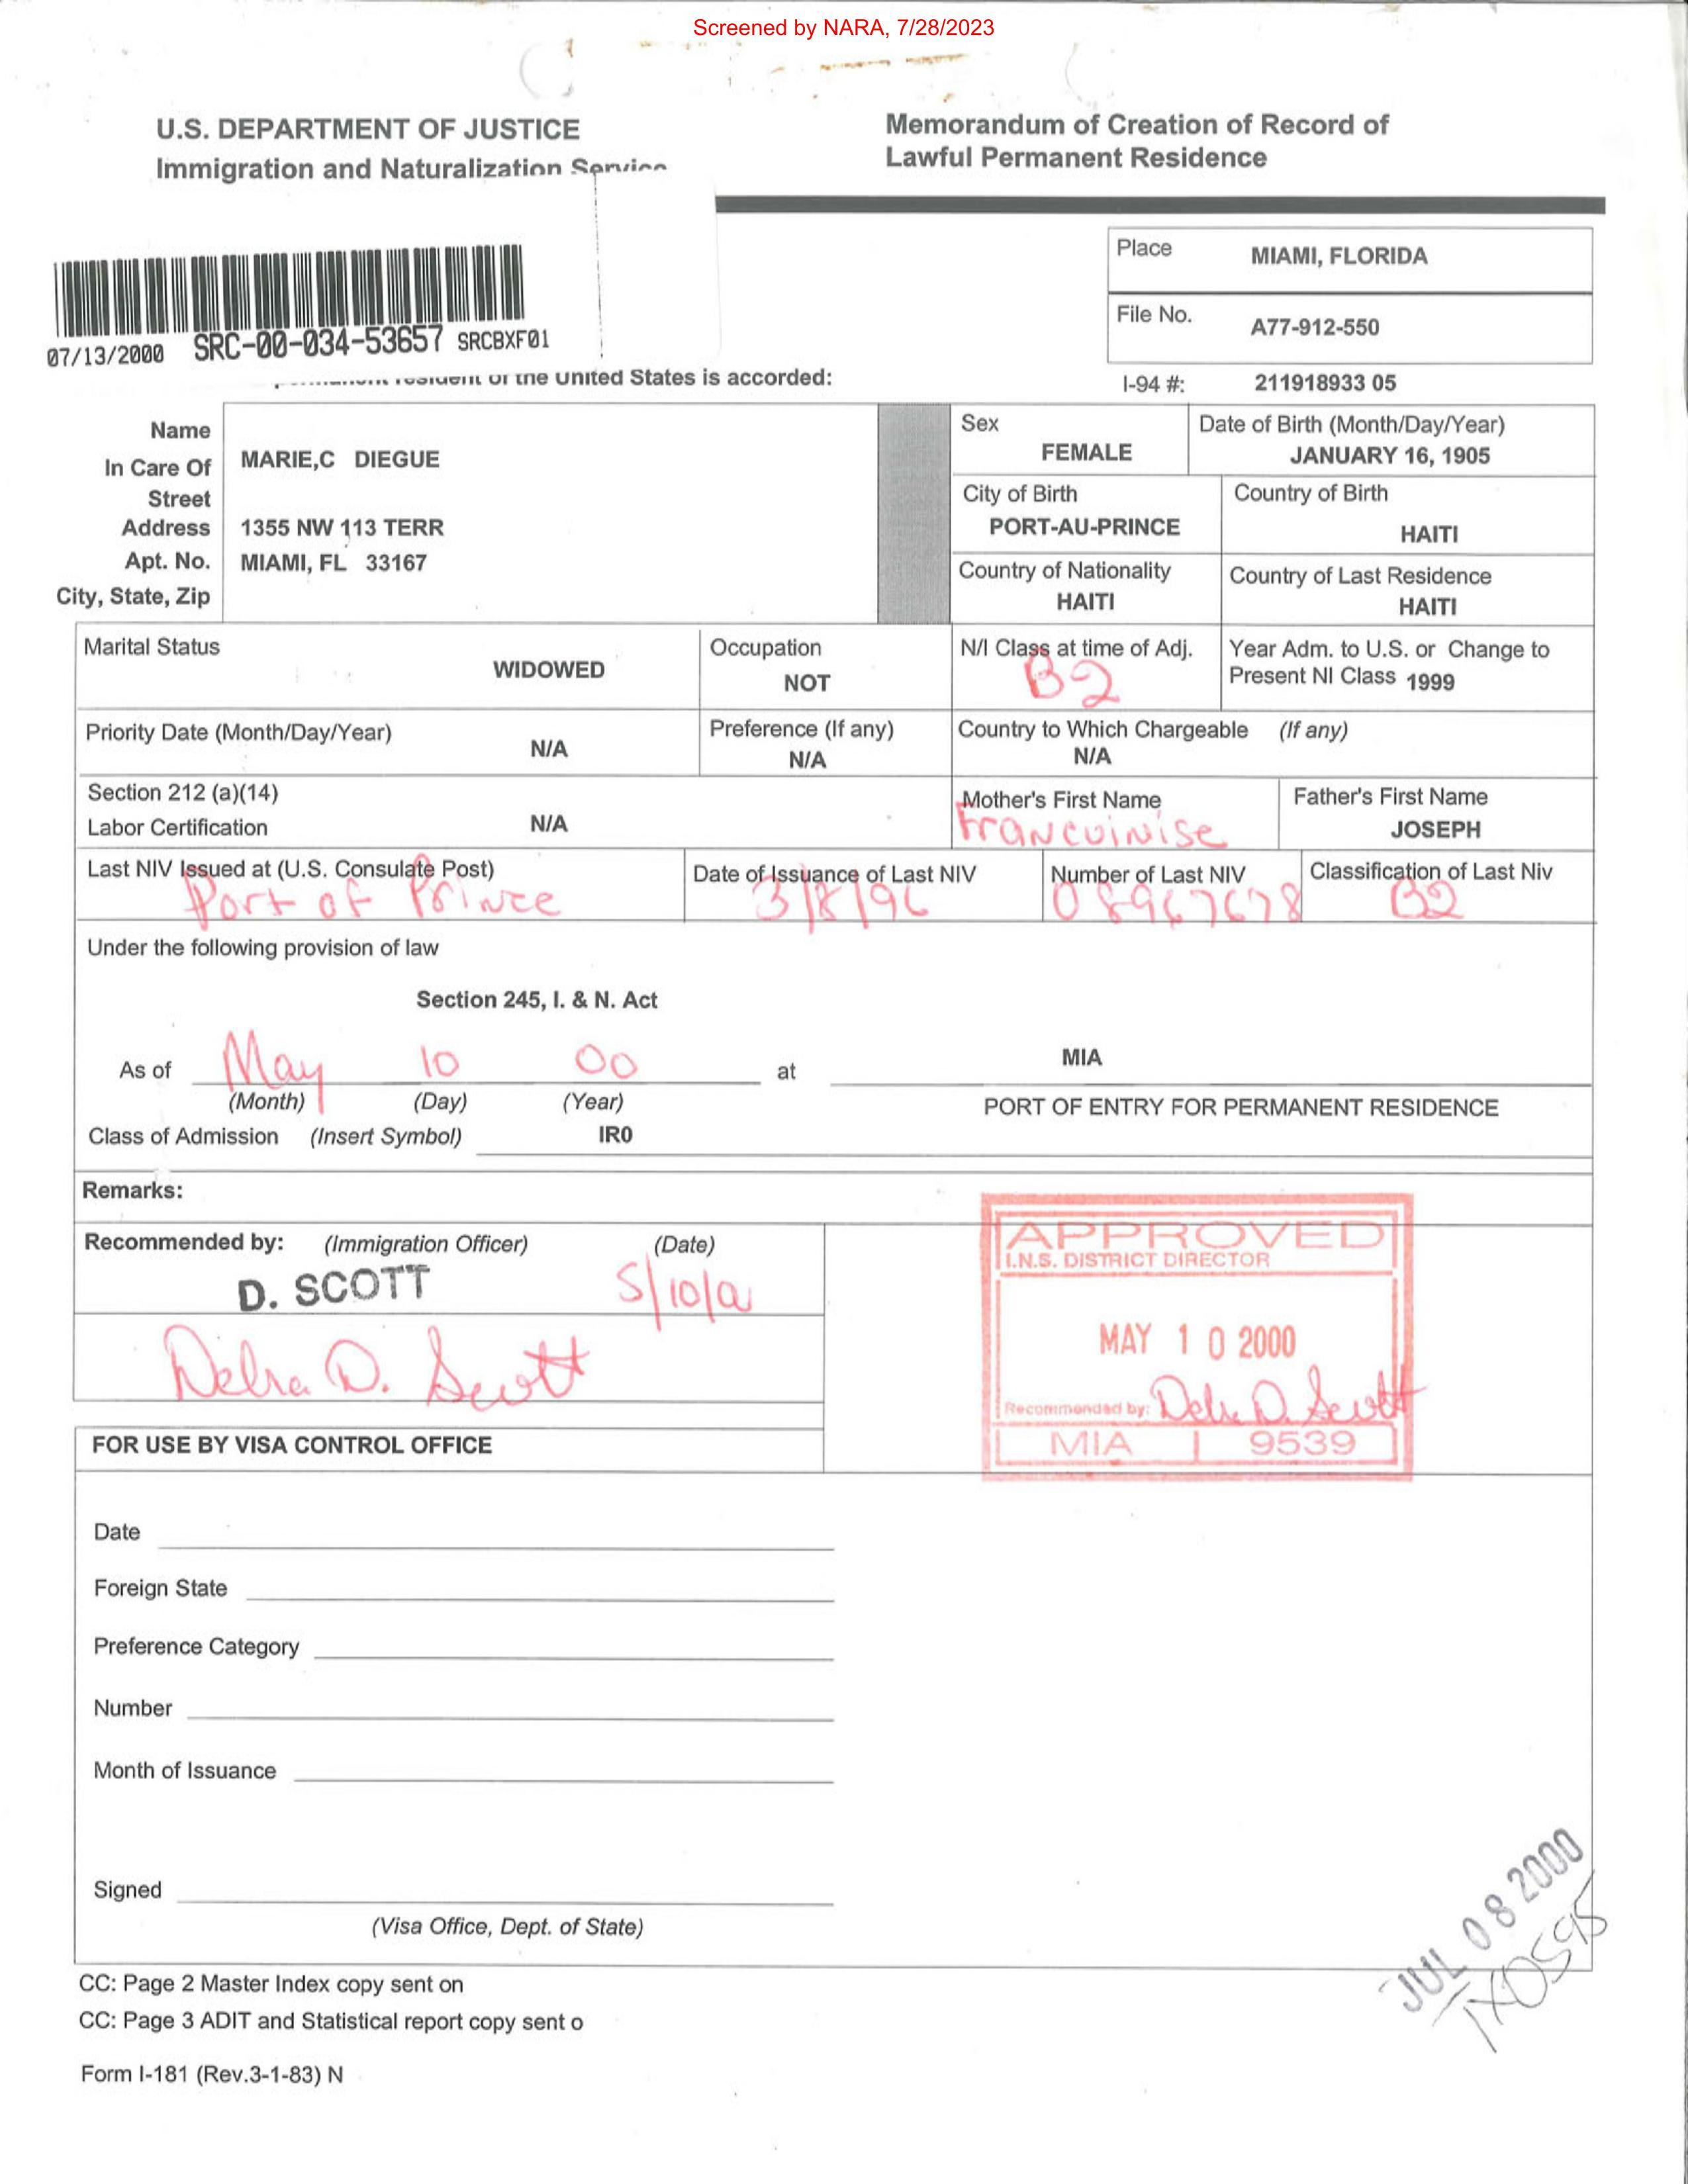 Screened by NARA, 7/28/2023
U.S. DEPARTMENT OF JUSTICE
Immigration and Naturalization Service
Memorandum of Creation of Record of
Lawful Permanent Residence
Place MIAMI, FLORIDA
File No. A77-912-550
07/13/2000 SRC-00-034-53657 SRCBXF01
resident of the United States is accorded:
I-94 #: 211918933 05
Name
In Care Of MARIE,C DIEGUE
Street
Address 1355 NW 113 TERR
Apt. No. MIAMI, FL 33167
City, State, Zip
Sex FEMALE
Date of Birth (Month/Day/Year)
JANUARY 16, 1905
City of Birth
PORT-AU-PRINCE
Country of Birth
HAITI
Country of Nationality
HAITI
Country of Last Residence
HAITI
Marital Status
WIDOWED
Occupation
NOT
N/I Class at time of Adj.
B2
Year Adm. to U.S. or Change to
Present NI Class 1999
Priority Date (Month/Day/Year)
N/A
Preference (If any)
N/A
Country to Which Chargeable (If any)
N/A
Section 212 (a)(14)
Labor Certification N/A
Mother's First Name
Francuinise
Father's First Name
JOSEPH
Last NIV Issued at (U.S. Consulate Post)
Port of Prince
Date of Issuance of Last NIV
3/8/96
Number of Last NIV
08967678
Classification of Last Niv
B2
Under the following provision of law
Section 245, I. & N. Act
As of May 10 00 at MIA
(Month) (Day) (Year)
PORT OF ENTRY FOR PERMANENT RESIDENCE
Class of Admission (Insert Symbol) IR0
Remarks:
Recommended by: (Immigration Officer) (Date)
D. SCOTT 5/10/00
Delra D. Scott
APPROVED
I.N.S. DISTRICT DIRECTOR
MAY 10 2000
Recommended by: Delra D. Scott
MIA 9539
FOR USE BY VISA CONTROL OFFICE
Date
Foreign State
Preference Category
Number
Month of Issuance
Signed
(Visa Office, Dept. of State)
JUL 08 2000
TX0595
CC: Page 2 Master Index copy sent on
CC: Page 3 ADIT and Statistical report copy sent o
Form I-181 (Rev.3-1-83) N